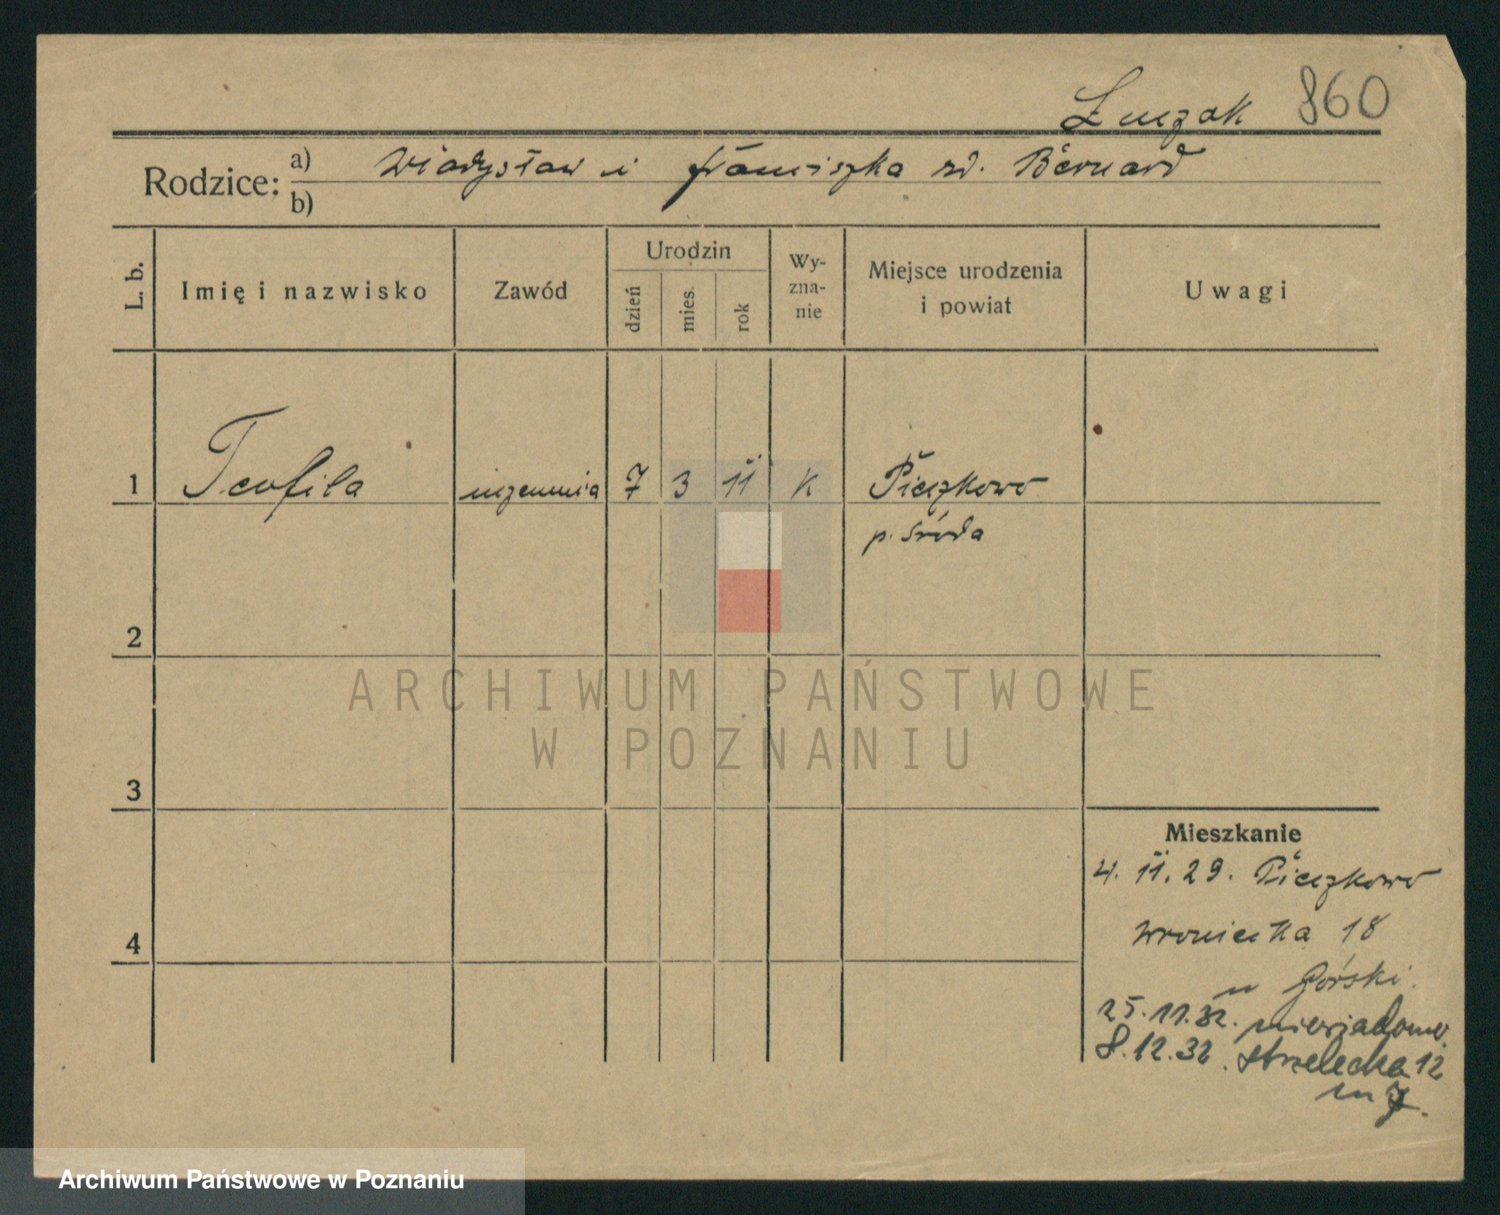 Łuczak 860
Rodzice: a) Władysław i Franciszka zd. Bernard
b)
L. b. Imię i nazwisko Zawód Urodzin dzień mies. rok Wy-zna-nie Miejsce urodzenia i powiat Uwagi
1 Teofila uczennica 7 3 11 K Pięczkowo
p. Środa
2
ARCHIWUM PAŃSTWOWE
W POZNANIU
3
Mieszkanie
4. 11. 29. Pięczkowo
4
Wroniecka 18
u Górski.
25.11.32. niewiadomo
8.12.32. Strzelecka 12
m 7.
Archiwum Państwowe w Poznaniu